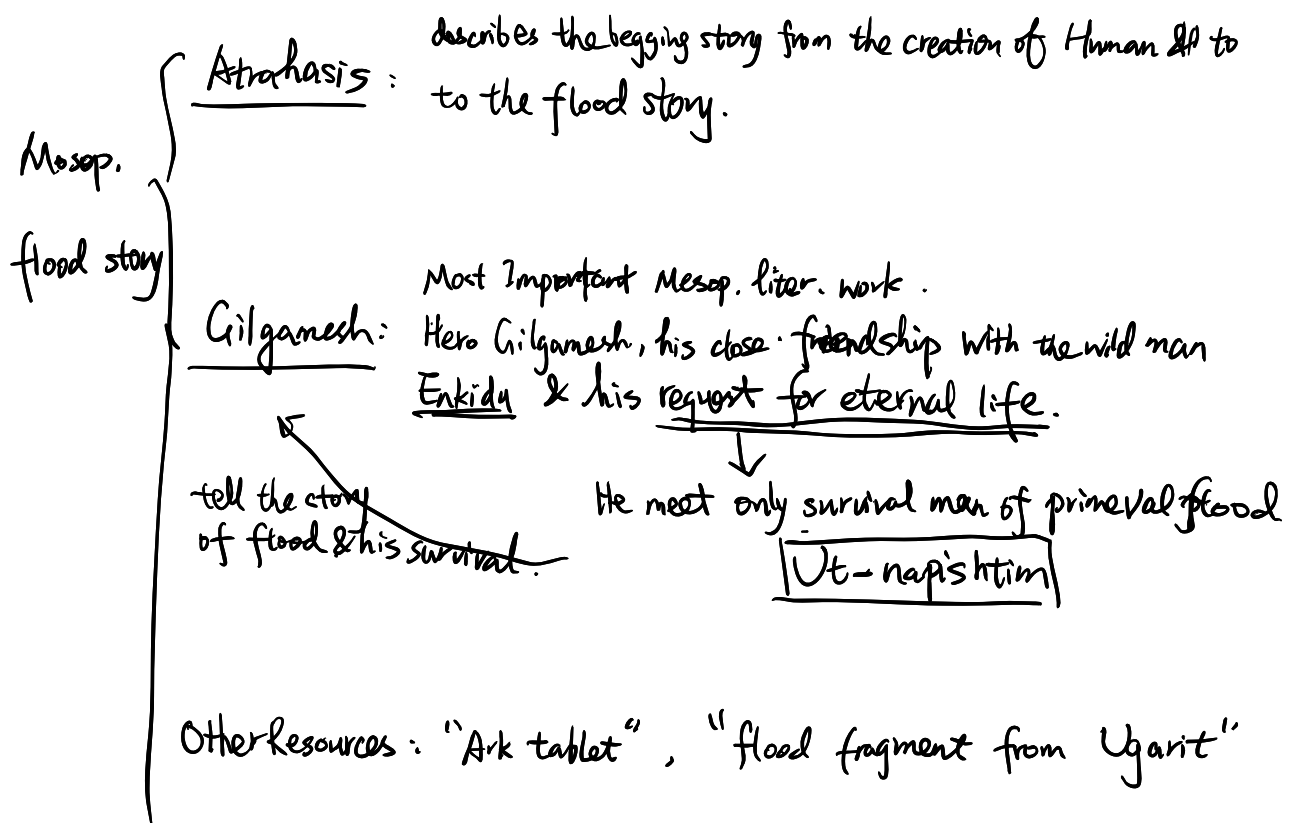 Mesop.
flood story
Atrahasis :
describes the begging story from the creation of Human to
to the flood story.
Gilgamesh :
Most Important Mesop. liter. work .
Hero Gilgamesh, his close friendship with the wild man
Enkidu & his request for eternal life.
He meet only survival man of primeval flood
Ut-napishtim
tell the story
of flood & his survival.
Other Resources : "Ark tablet", "flood fragment from Ugarit"